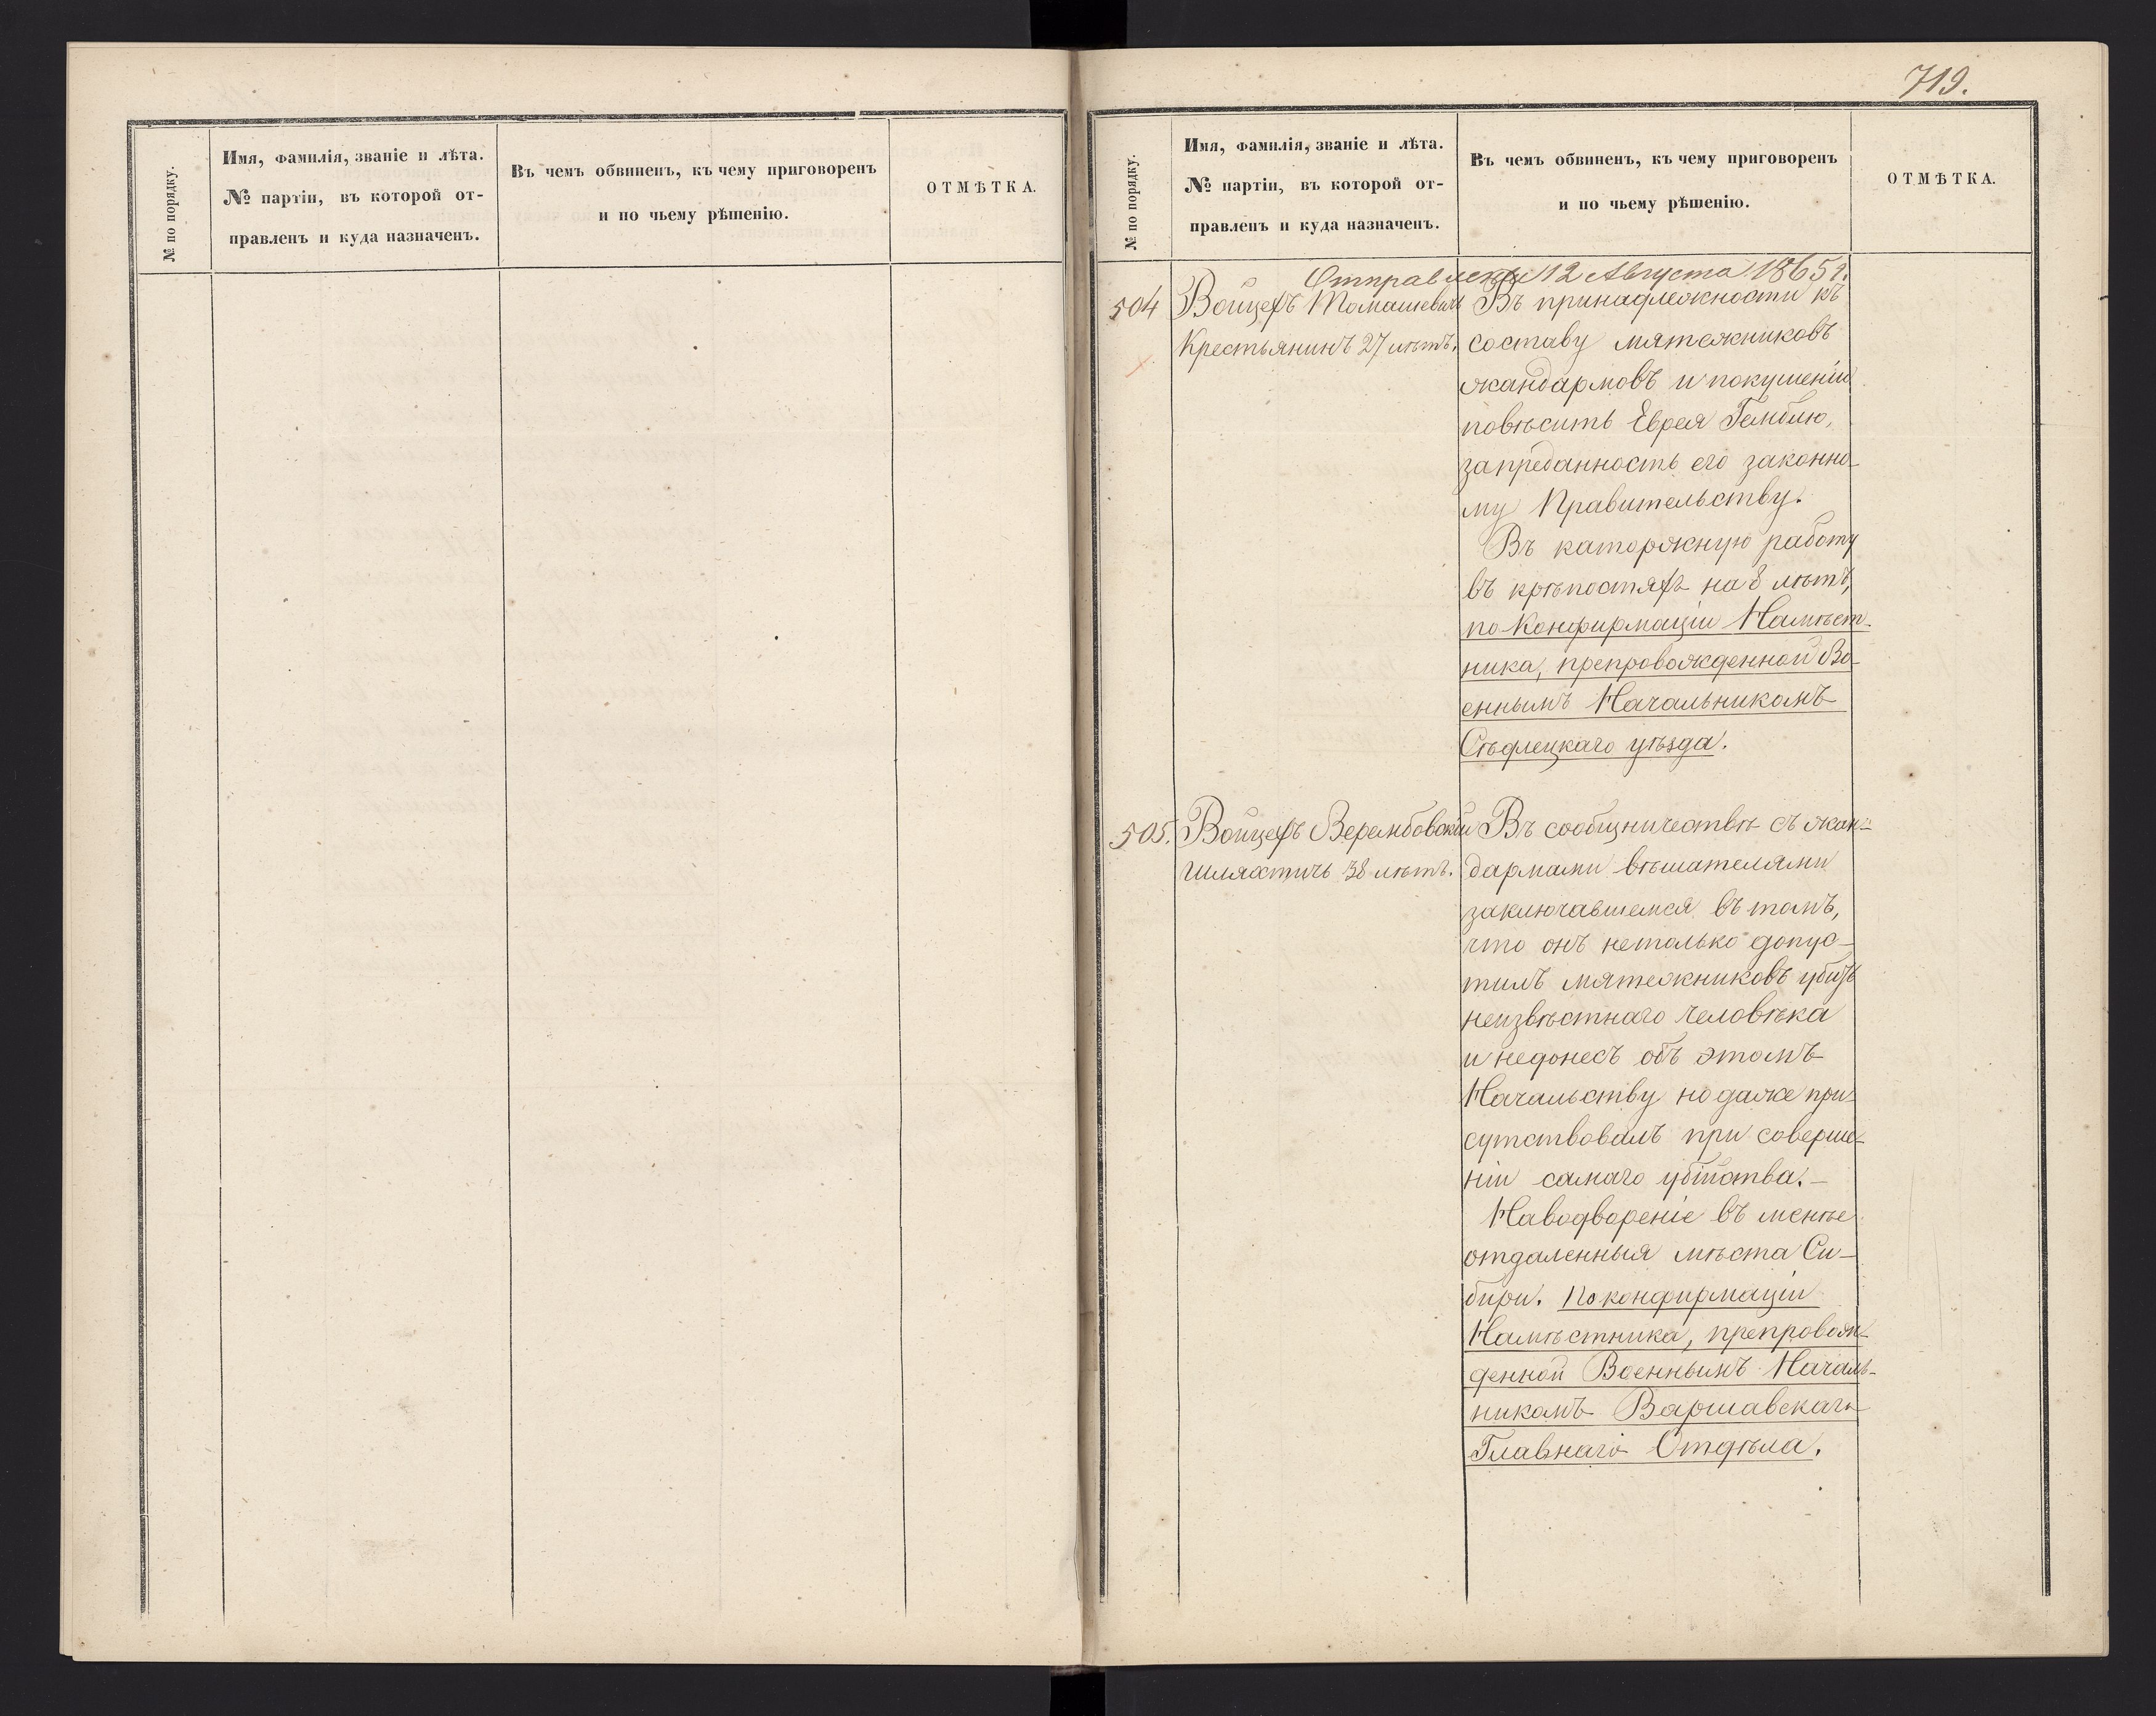 № по порядку.
Имя, фамилія, званіе и лѣта.
№ партіи, въ которой от-
правленъ и куда назначенъ.
Въ чемъ обвиненъ, къ чему приговоренъ
и по чьему рѣшенію.
ОТМѢТКА.
719.
№ по порядку.
Имя, фамилія, званіе и лѣта.
№ партіи, въ которой от-
правленъ и куда назначенъ.
Въ чемъ обвиненъ, къ чему приговоренъ
и по чьему рѣшенію.
ОТМѢТКА.
Отправлены 12 Августа 1865 г.
504
Войцехъ Томашевичъ
Крестьянинъ 27 лѣтъ.
Въ принадлежности къ
составу мятежниковъ
жандармовъ и покушеніи
повѣсить Еврея
запреданность его законно-
му Правительству.
Въ каторжную работу
въ крѣпостяхъ на 8 лѣтъ,
по Конфирмаціи Намѣст-
ника, препровожденной Во-
еннымъ Начальникомъ
Сѣдлецкаго уѣзда.
505.
Войцехъ Верембовскій
Шляхтичъ 38 лѣтъ.
Въ сообщничествѣ съ жан-
дармами вѣшателями
заключавшемся въ томъ,
что онъ нетолько допус-
тилъ мятежниковъ убить
неизвѣстнаго человѣка
и недонесъ объ этомъ
Начальству но даже при-
сутствовалъ при соверше-
ніи самаго убійства.-
Наводвореніе въ менѣе
отдаленныя мѣста Си-
бири. По конфирмаціи
Намѣстника, препровож-
денной Военнымъ Началь-
никомъ Варшавскаго
Главнаго Отдѣла.